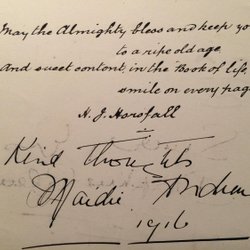 May the Almighty bless and keep you
to a ripe old age,
And sweet content, in the Book of life,
smile on every pag
H. J. Horsfall
Kind Thoughts
1916